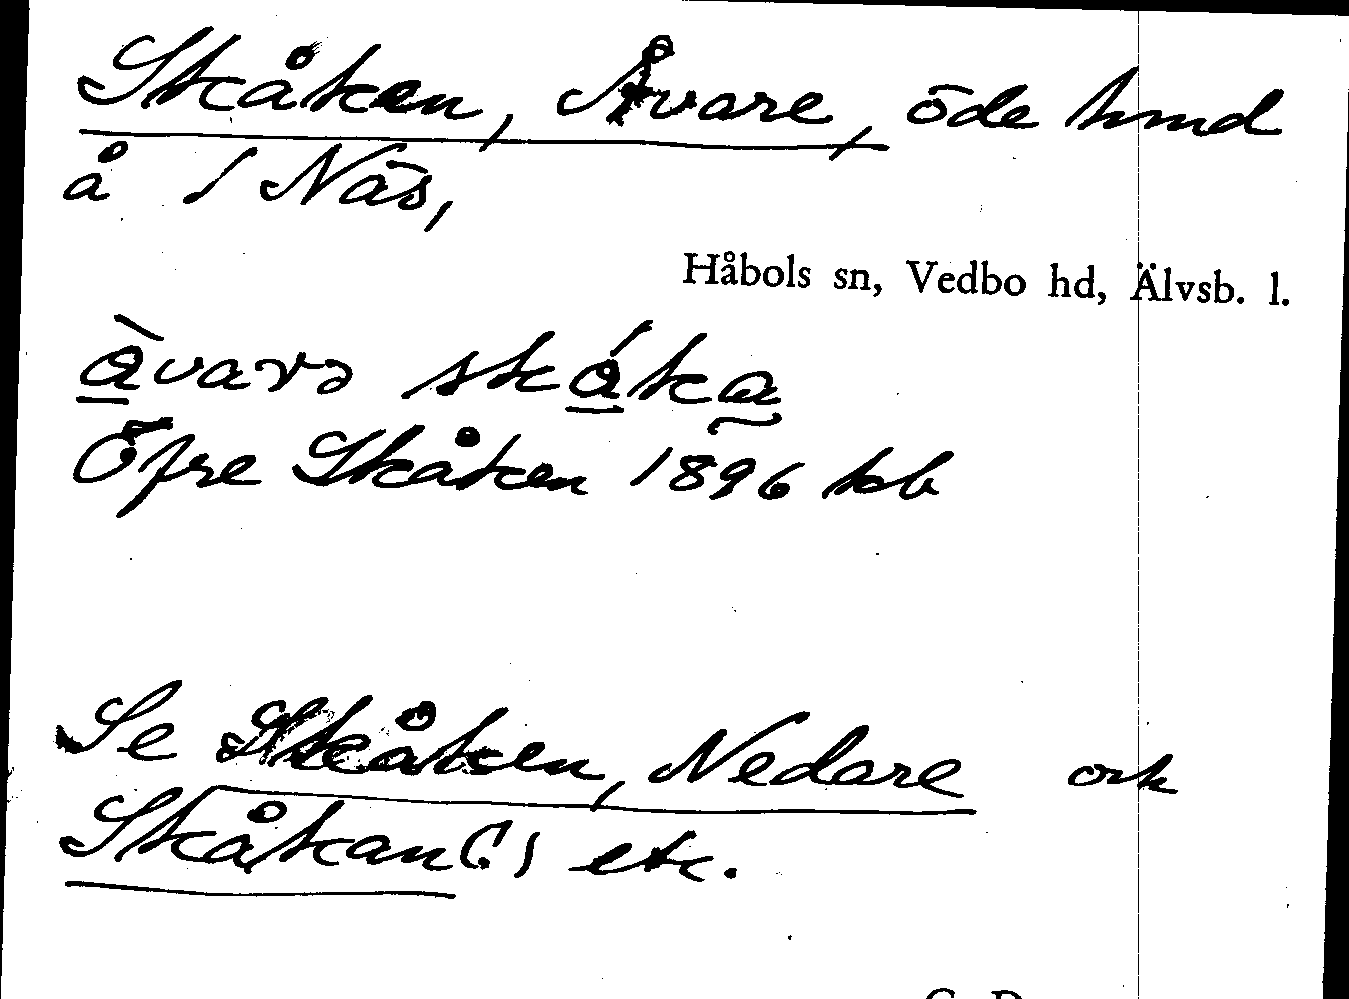 Skåken, Åvare, öde hmd
å 1 Näs,
Håbols sn, Vedbo hd, Älvsb. l.
åvarə skåka
Öfre Skåken 1896 kb
Se Skåken, Nedare och
Skåkan(?) etc.